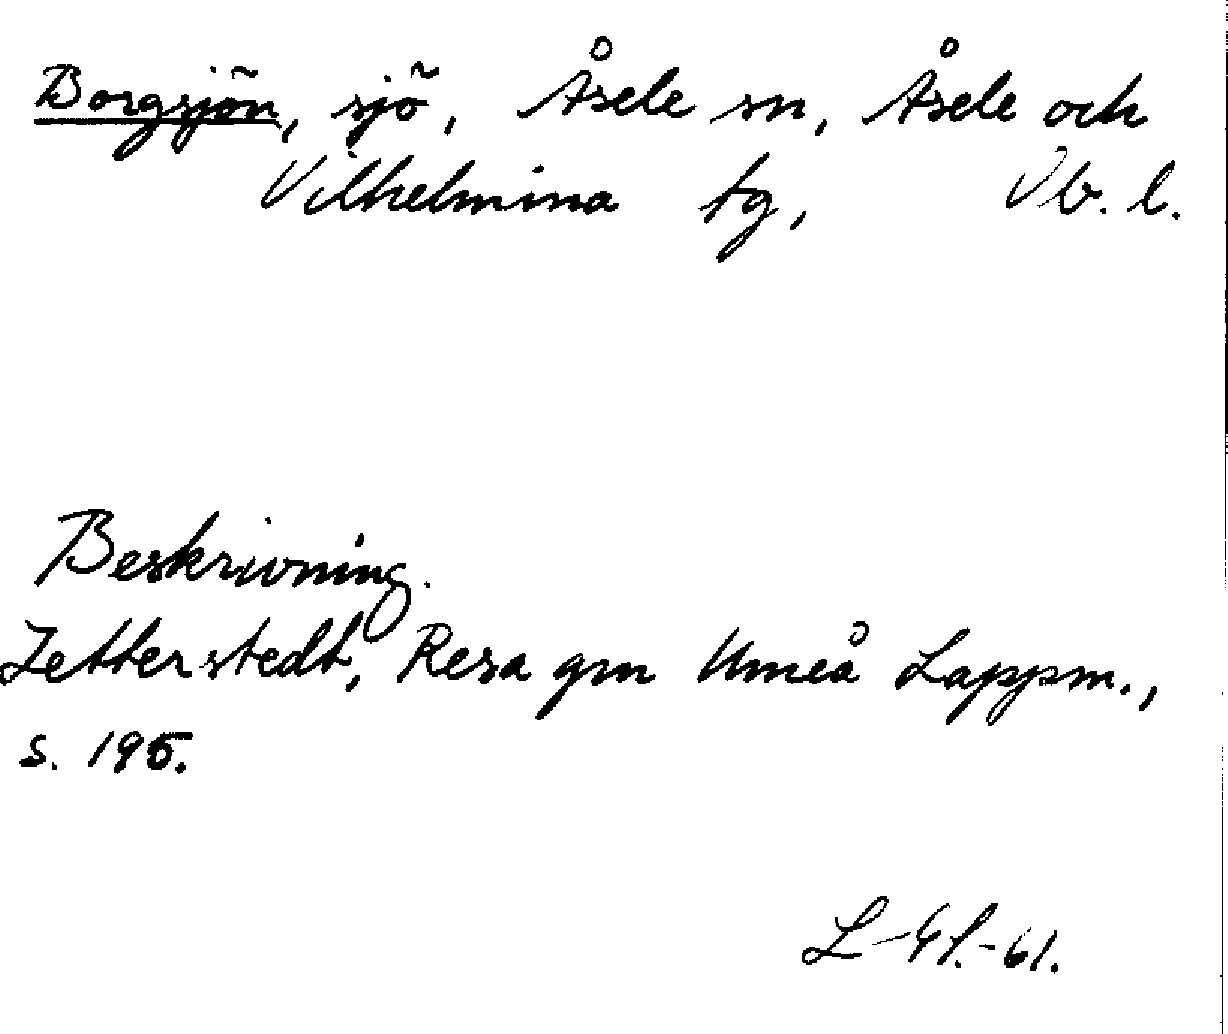 Borgsjön, sjö, Åsele sn, Åsele och
Vilhelmina tg, Vb. l.
Beskrivning.
Zetterstedt, Resa gm Umeå Lappm.,
s. 195.
L-Gl.-61.